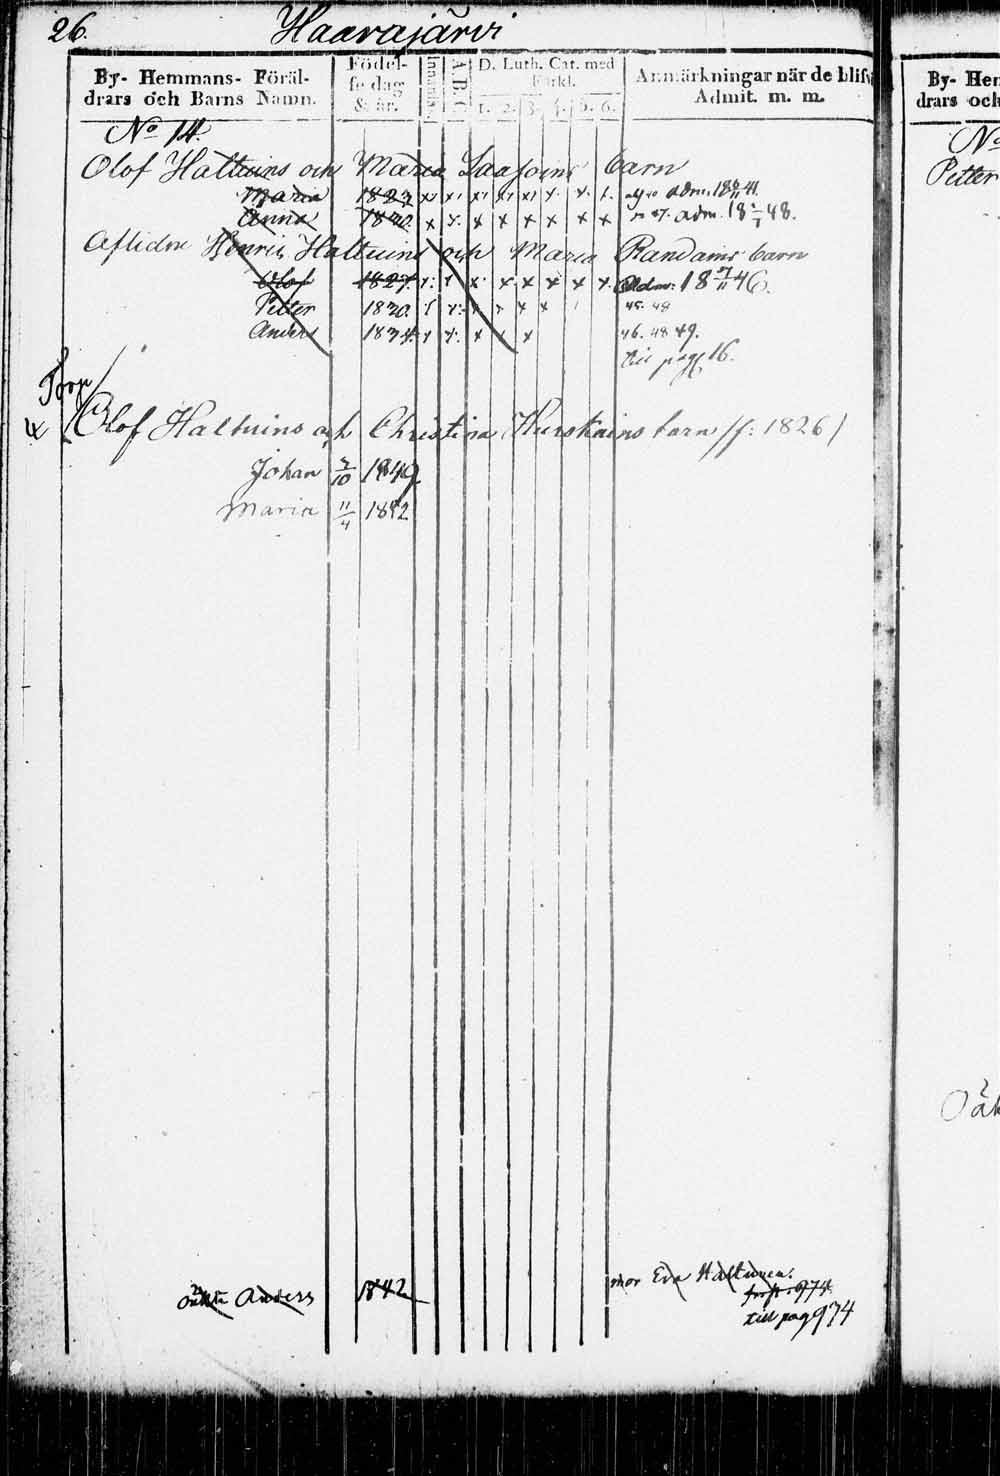 26. Haarajärvi
By- Hemmans- Föräl-
drars och Barns Namn.
Födel-
se dag
& år.
Innanläs.
A.B.C.
D. Luth. Cat. med
Förkl.
1. 2. 3. 4. 5. 6.
Anmärkningar när de blifv
Admit. m. m.
No 14.
Olof Haltuins och Maria Laasoins barn
Maria 1823 adm. 18 41.
Anna 1830 47. adm. 18 48.
Aflidne Henric Haltuins och Maria Randains barn
Olof 1827 Adm: 18 46.
Petter 1830. 45. 48
Anders 1834. 46. 48 49.
till pag 16.
Torp
Olof Haltuins och Christina Hurskains barn /f: 1826/
Johan 3/10 1849
Maria 11/4 1852
oäkta Anders 1842 mor Eva Haltunen.
974
till pag 974
By- Hem
drars och
No
Petter
Oäk